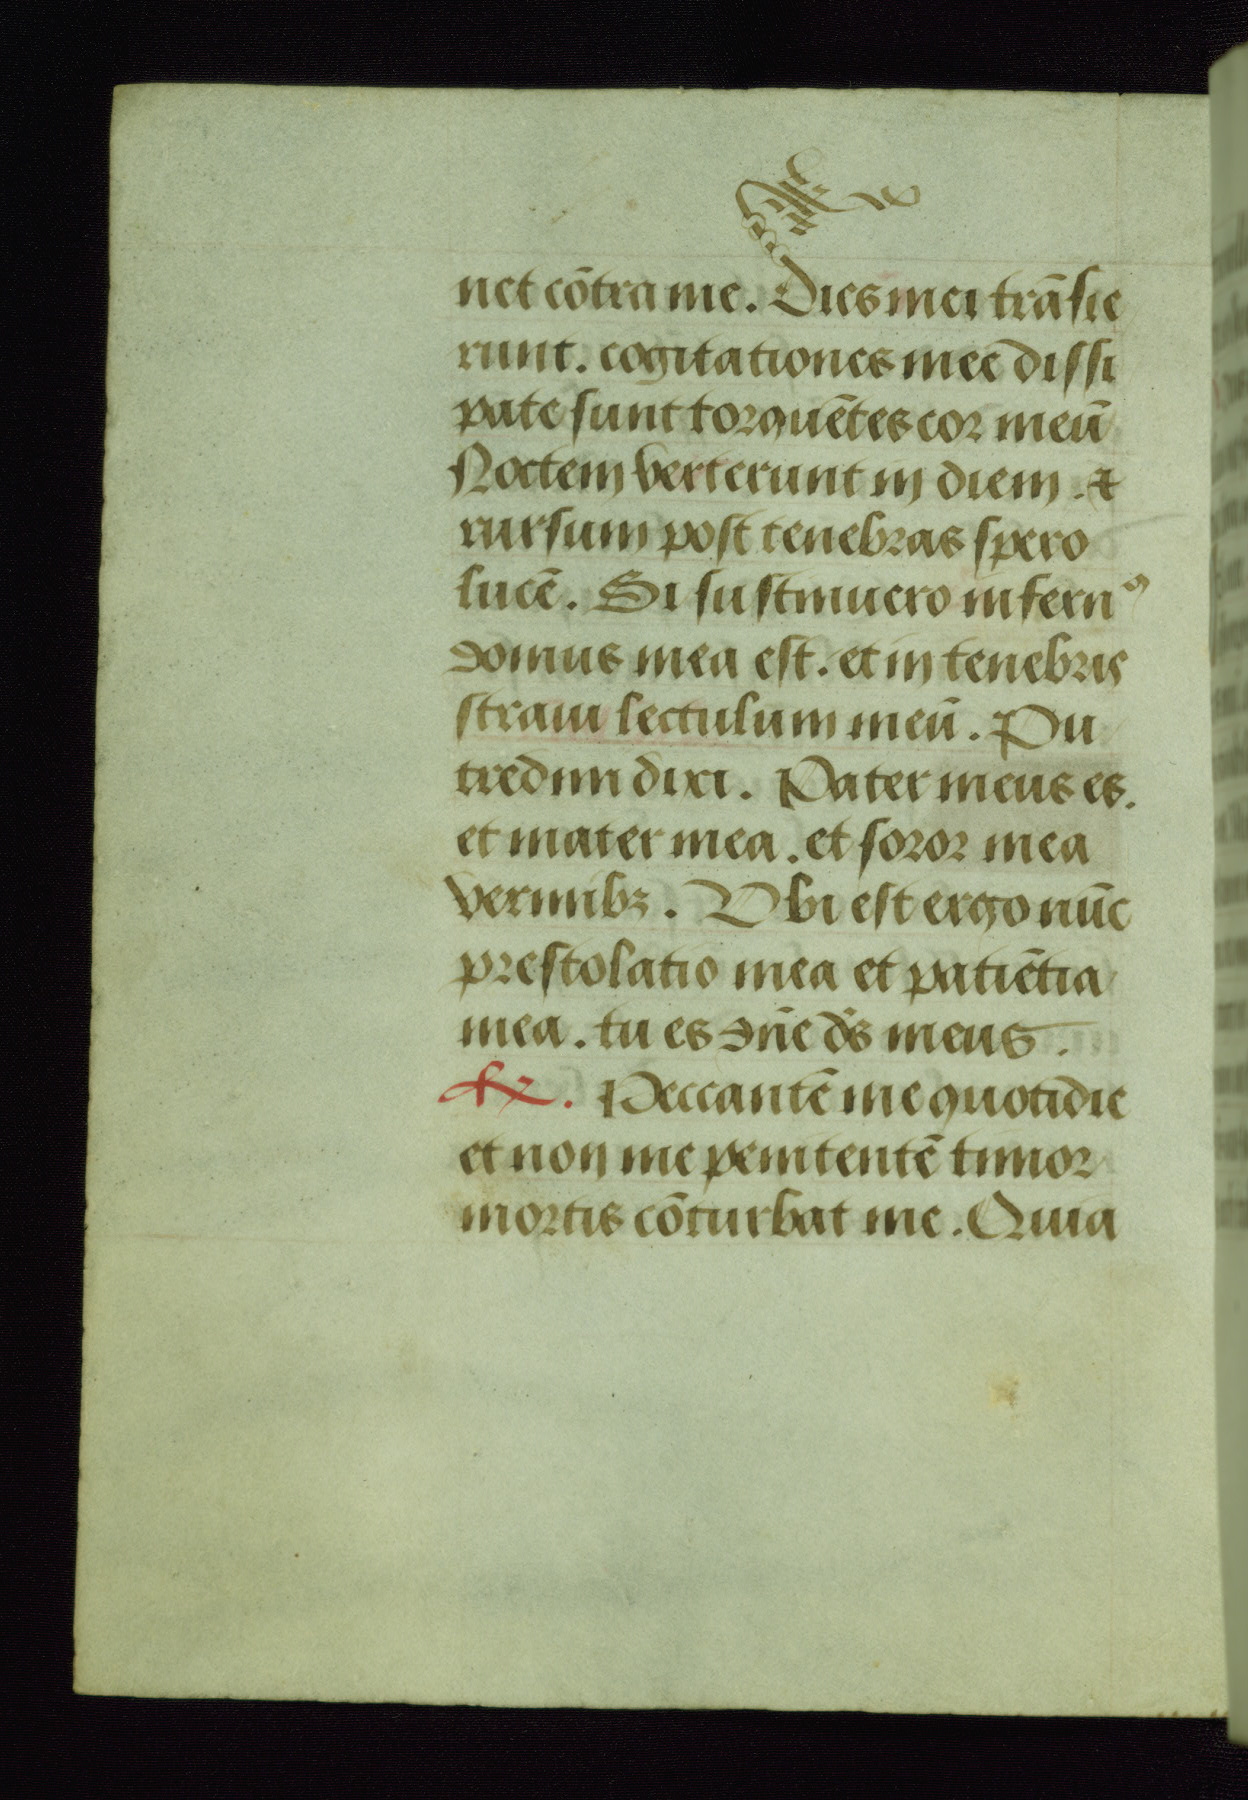 net cōtra me. Dies mei trāsie
runt. cogitationes mee dissi
pate sunt torquētes cor meū
Noctem verterunt in diem. &
rursum post tenebras spero
lucē. Si sustinuero infernꝰ
domus mea est. et in tenebris
straui lectulum meū. Pu
tredini dixi. Pater meus es.
et mater mea. et soror mea
vermibꝫ. Vbi est ergo nūc
prestolatio mea et patiētia
mea. tu es dn̄e ds̄ meus.
℟. Peccantē me quotidie
et non me penitentē timor
mortis cōturbat me. Quia